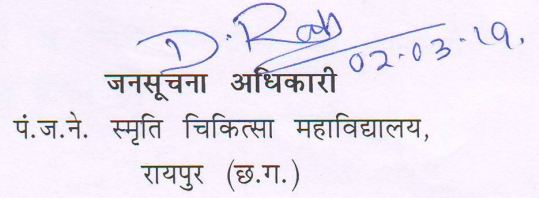 D. Rao
02-03-19.
जनसूचना अधिकारी
पं.ज.ने. स्मृति चिकित्सा महाविद्यालय,
रायपुर (छ.ग.)